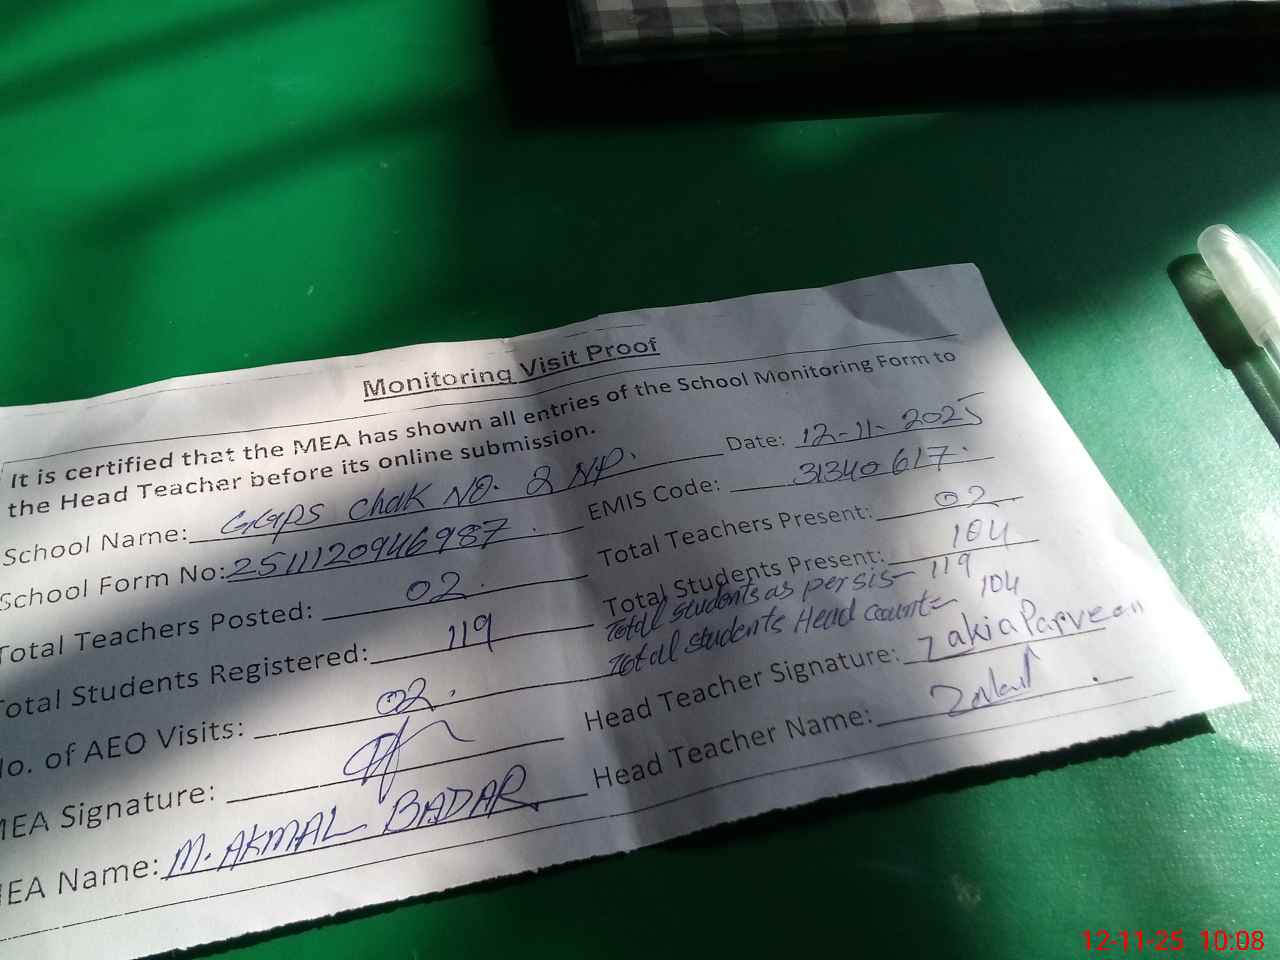 Monitoring Visit Proof
It is certified that the MEA has shown all entries of the School Monitoring Form to
the Head Teacher before its online submission.
School Name: GGPS Chak NO. 2 NP. Date: 12-11-2025
School Form No: 2511120946987. EMIS Code: 31340617.
Total Teachers Posted: 02. Total Teachers Present: 02
Total Students Registered: 119 Total Students Present: 104
Total students as per sis- 119
No. of AEO Visits: 02. Total students Head count- 104
MEA Signature: Head Teacher Signature: Zakia Parveen
MEA Name: M. AKMAL BADAR Head Teacher Name:
12-11-25 10:08